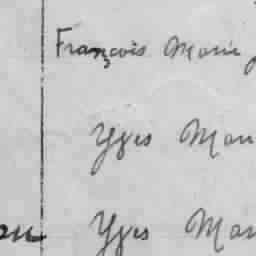 François Marie
Yves Mar
ou Yves Mar